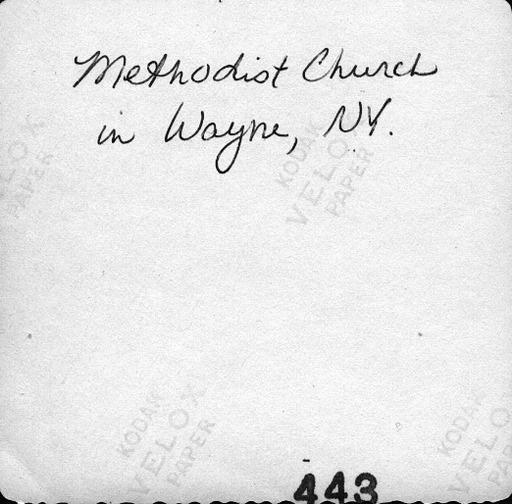 Methodist Church
in Wayne, NY.
KODAK
VELOX
PAPER
KODAK
VELOX
PAPER
KODAK
VELOX
PAPER
KODAK
VELOX
PAPER
443